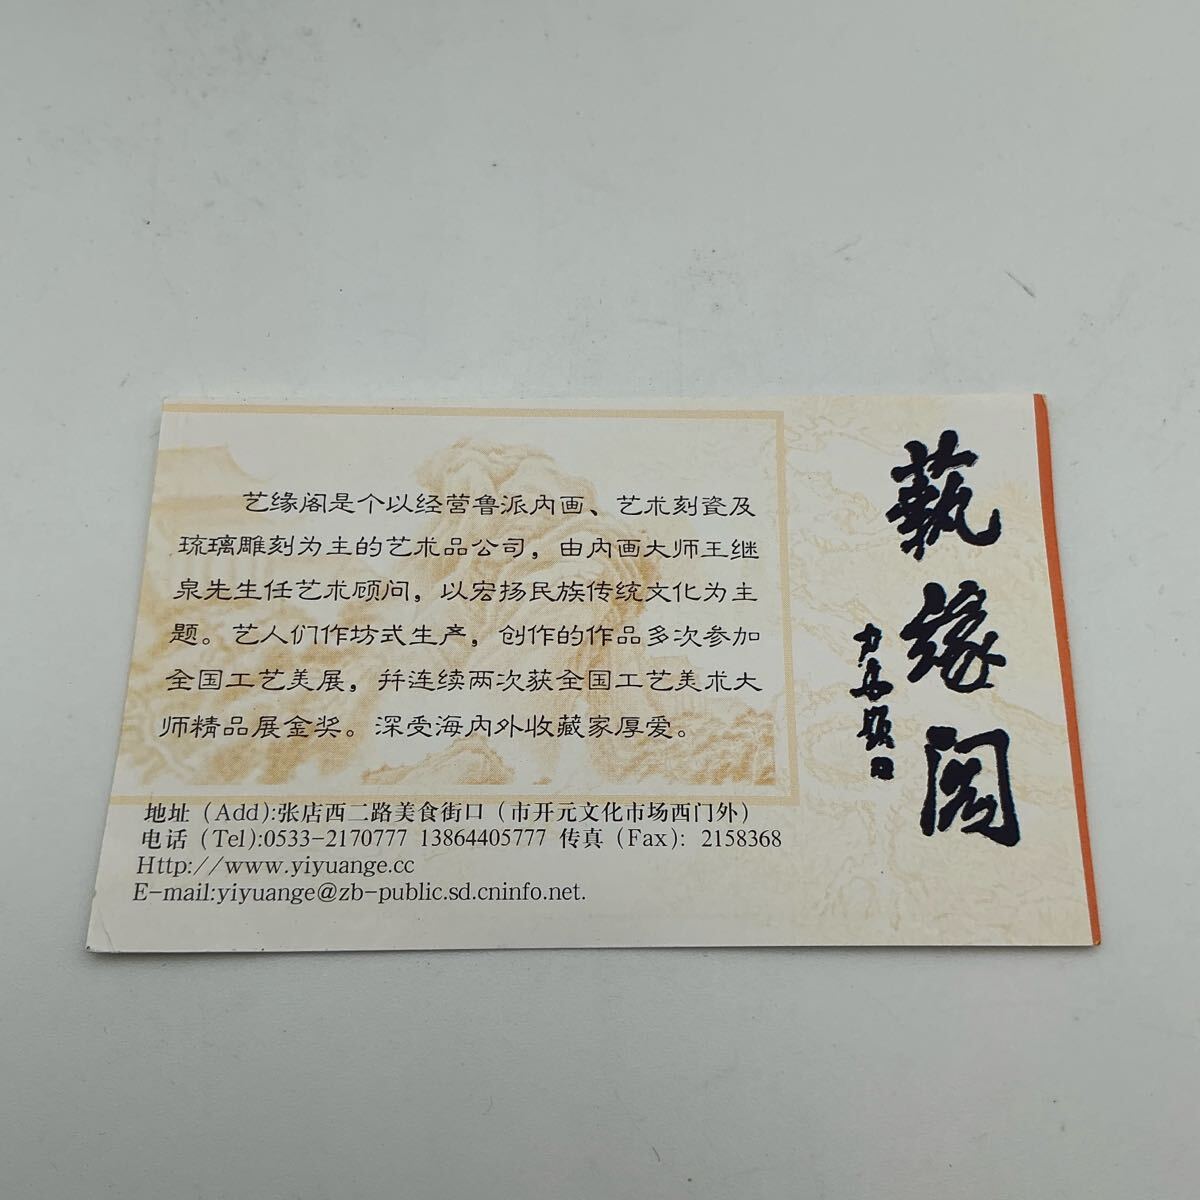 艺缘阁是个以经营鲁派内画、艺术刻瓷及
琉璃雕刻为主的艺术品公司，由内画大师王继
泉先生任艺术顾问，以宏扬民族传统文化为主
题。艺人们作坊式生产，创作的作品多次参加
全国工艺美展，并连续两次获全国工艺美术大
师精品展金奖。深受海内外收藏家厚爱。
地址（Add）:张店西二路美食街口（市开元文化市场西门外）
电话（Tel）:0533-2170777 13864405777 传真（Fax）: 2158368
Http://www.yiyuange.cc
E-mail:yiyuange@zb-public.sd.cninfo.net.
藝缘阁